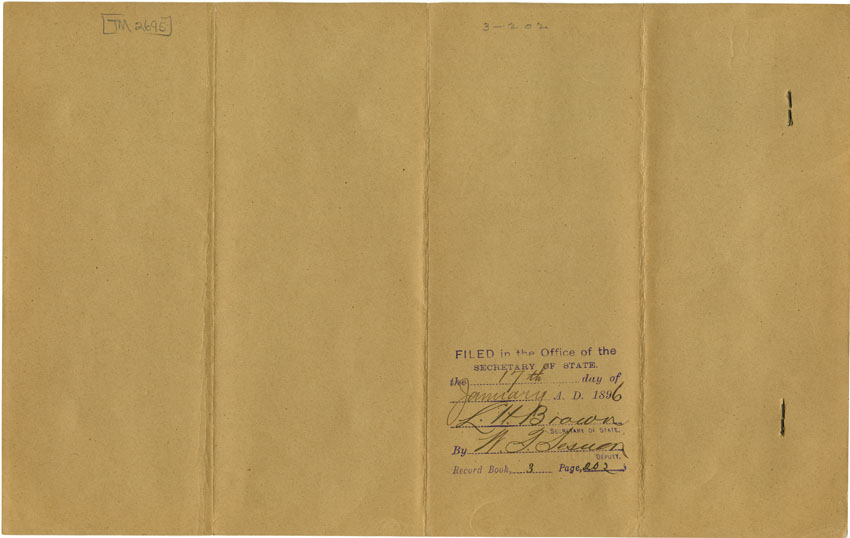 TM 2695
3-202
FILED in the Office of the
SECRETARY OF STATE.
the 17th day of
January A. D. 1896
L. H. Brown
SECRETARY OF STATE.
By
DEPUTY.
Record Book, 3 Page, 202